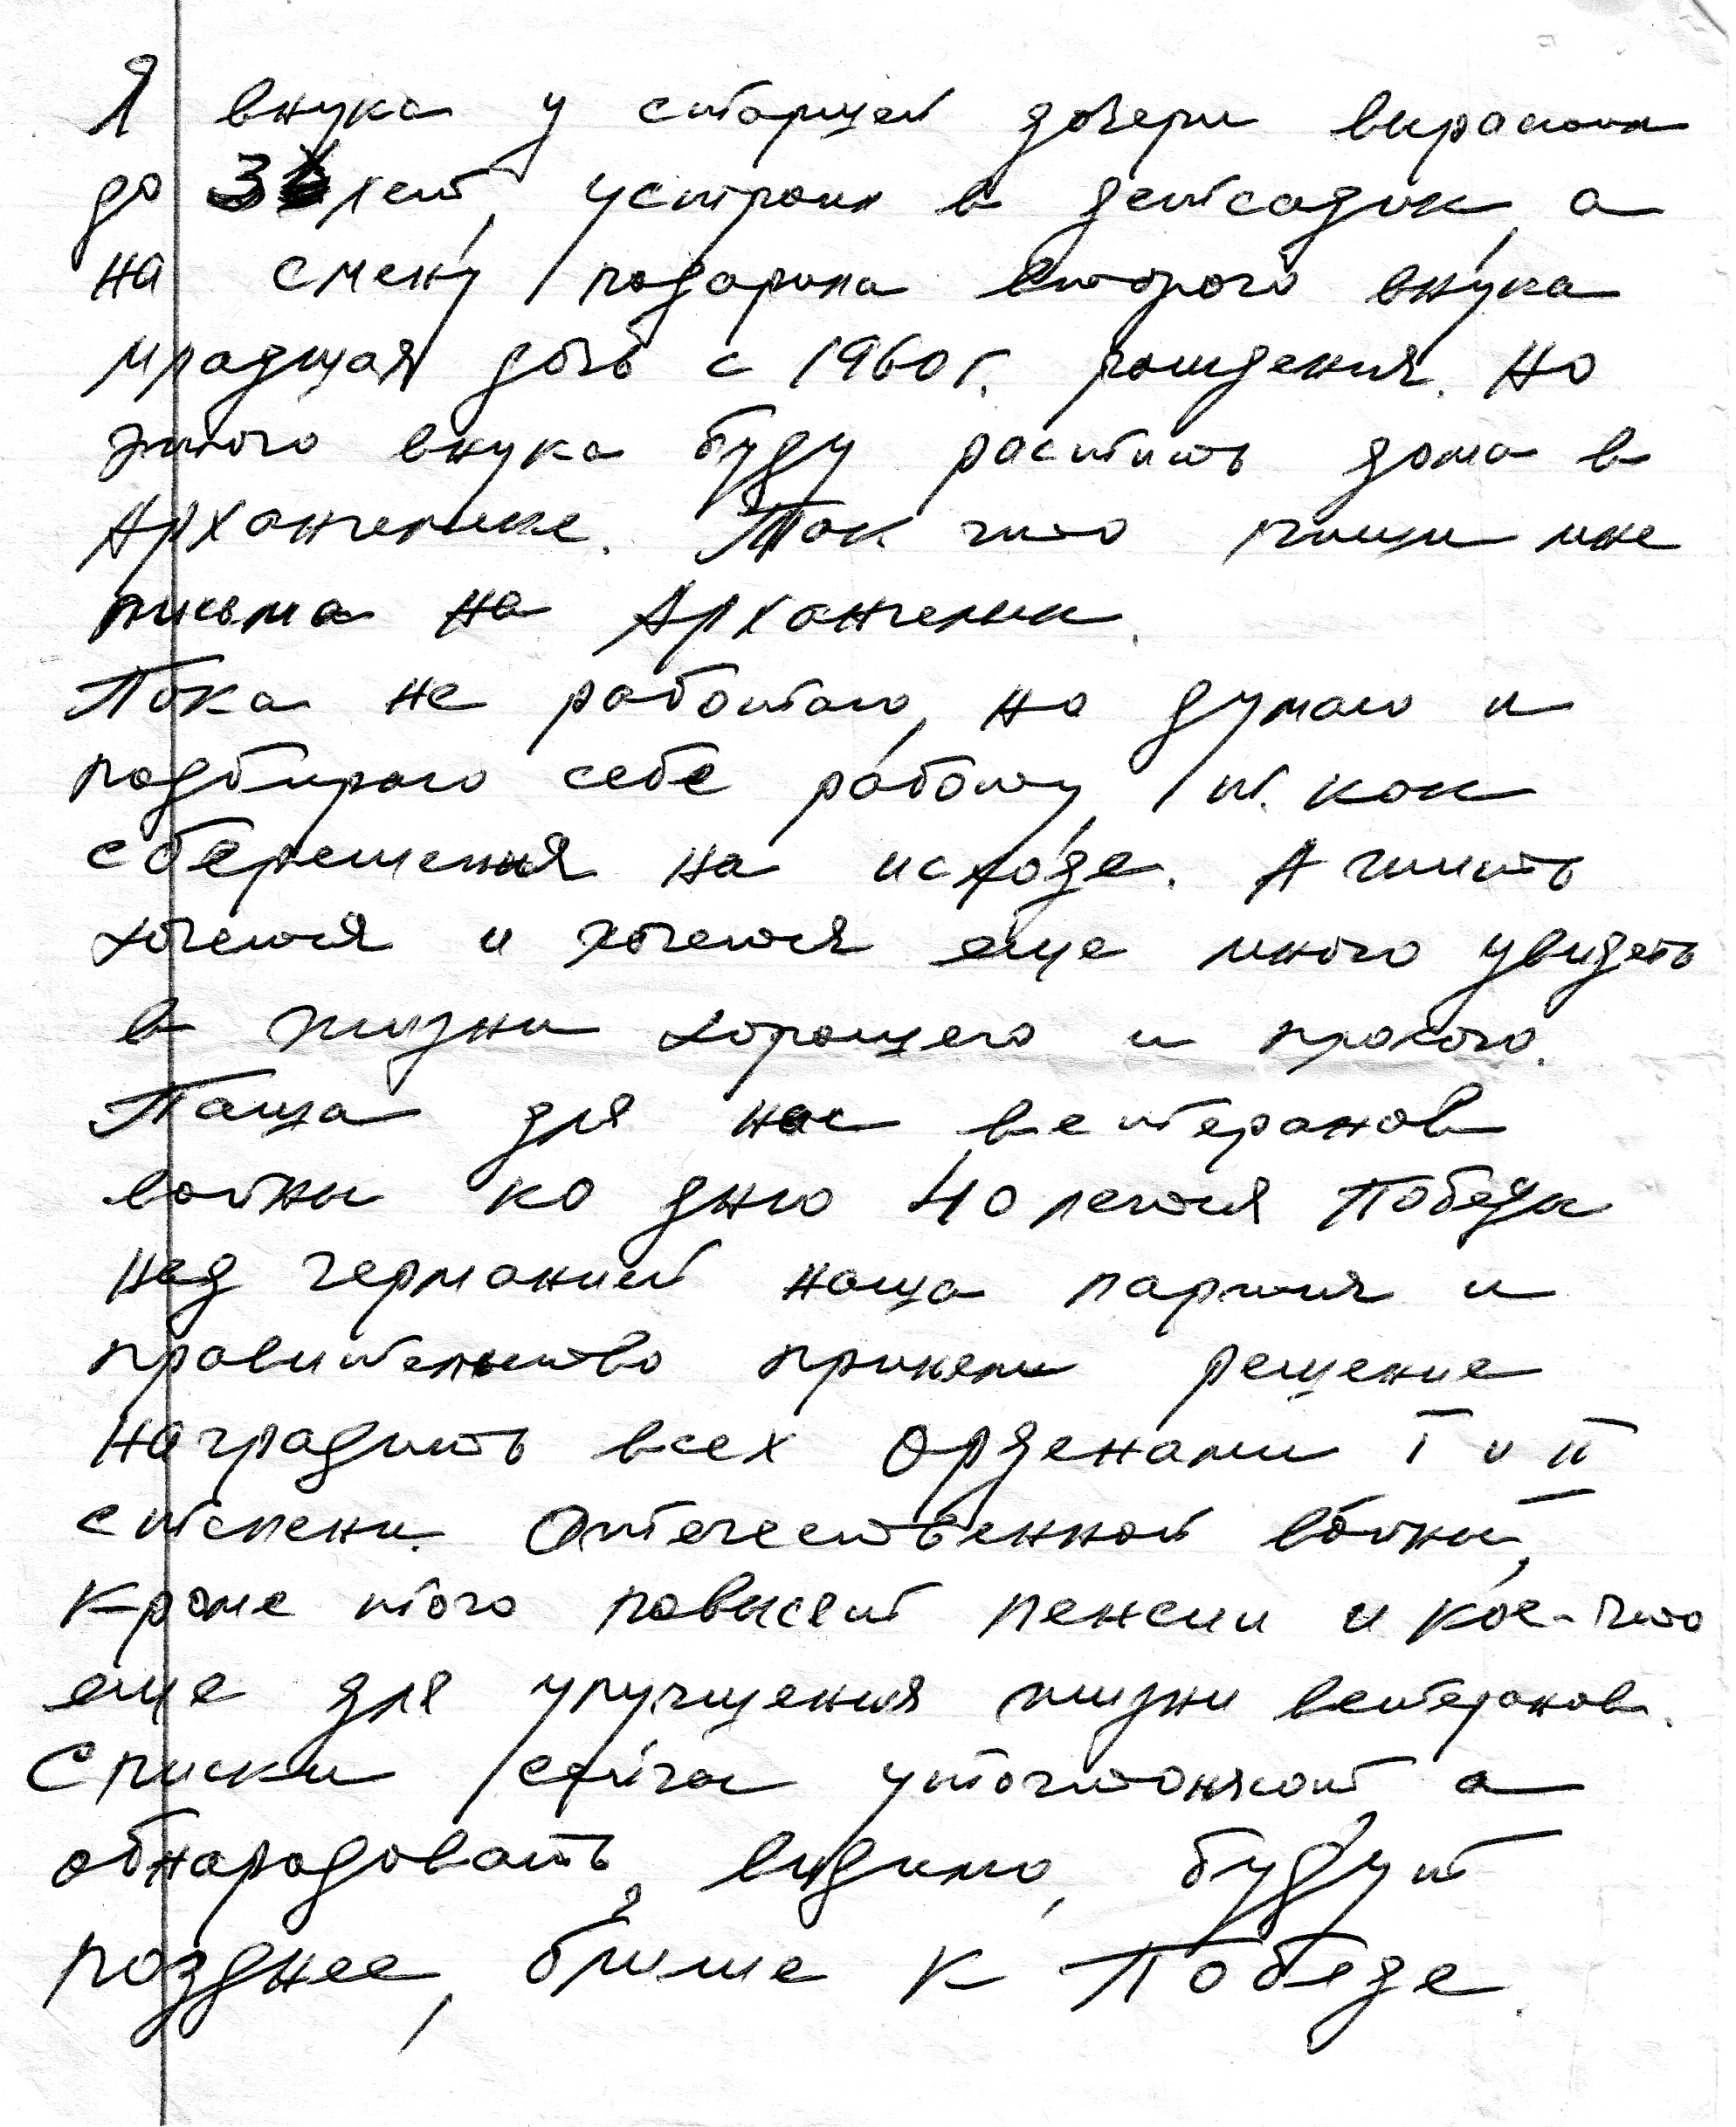 Я внука у старшей дочери вырастила
до 3х лет, устроили в детсадик, а
на смену подарила второго внука
младшая дочь с 1960 г. рождения. Но
этого внука буду растить дома в
Архангельске. Так что пиши мне
письма на Архангельск.
Пока не работаю, но думаю и
подбираю себе работу, т. как
сбережения на исходе. А жить
хочется и хочется еще много увидеть
в жизни хорошего и плохого.
Паша для нас, ветеранов
войны ко дню 40 летия Победы
над германией наша партия и
правительство приняли решение
наградить всех Орденами I и II
степени. Отечественной войны,
кроме того повысят пенсии и кое-что
еще для улучшения жизни ветеранов.
Списки сейчас уточняют а
обнародовать, видимо, будут
позднее, ближе к Победе.